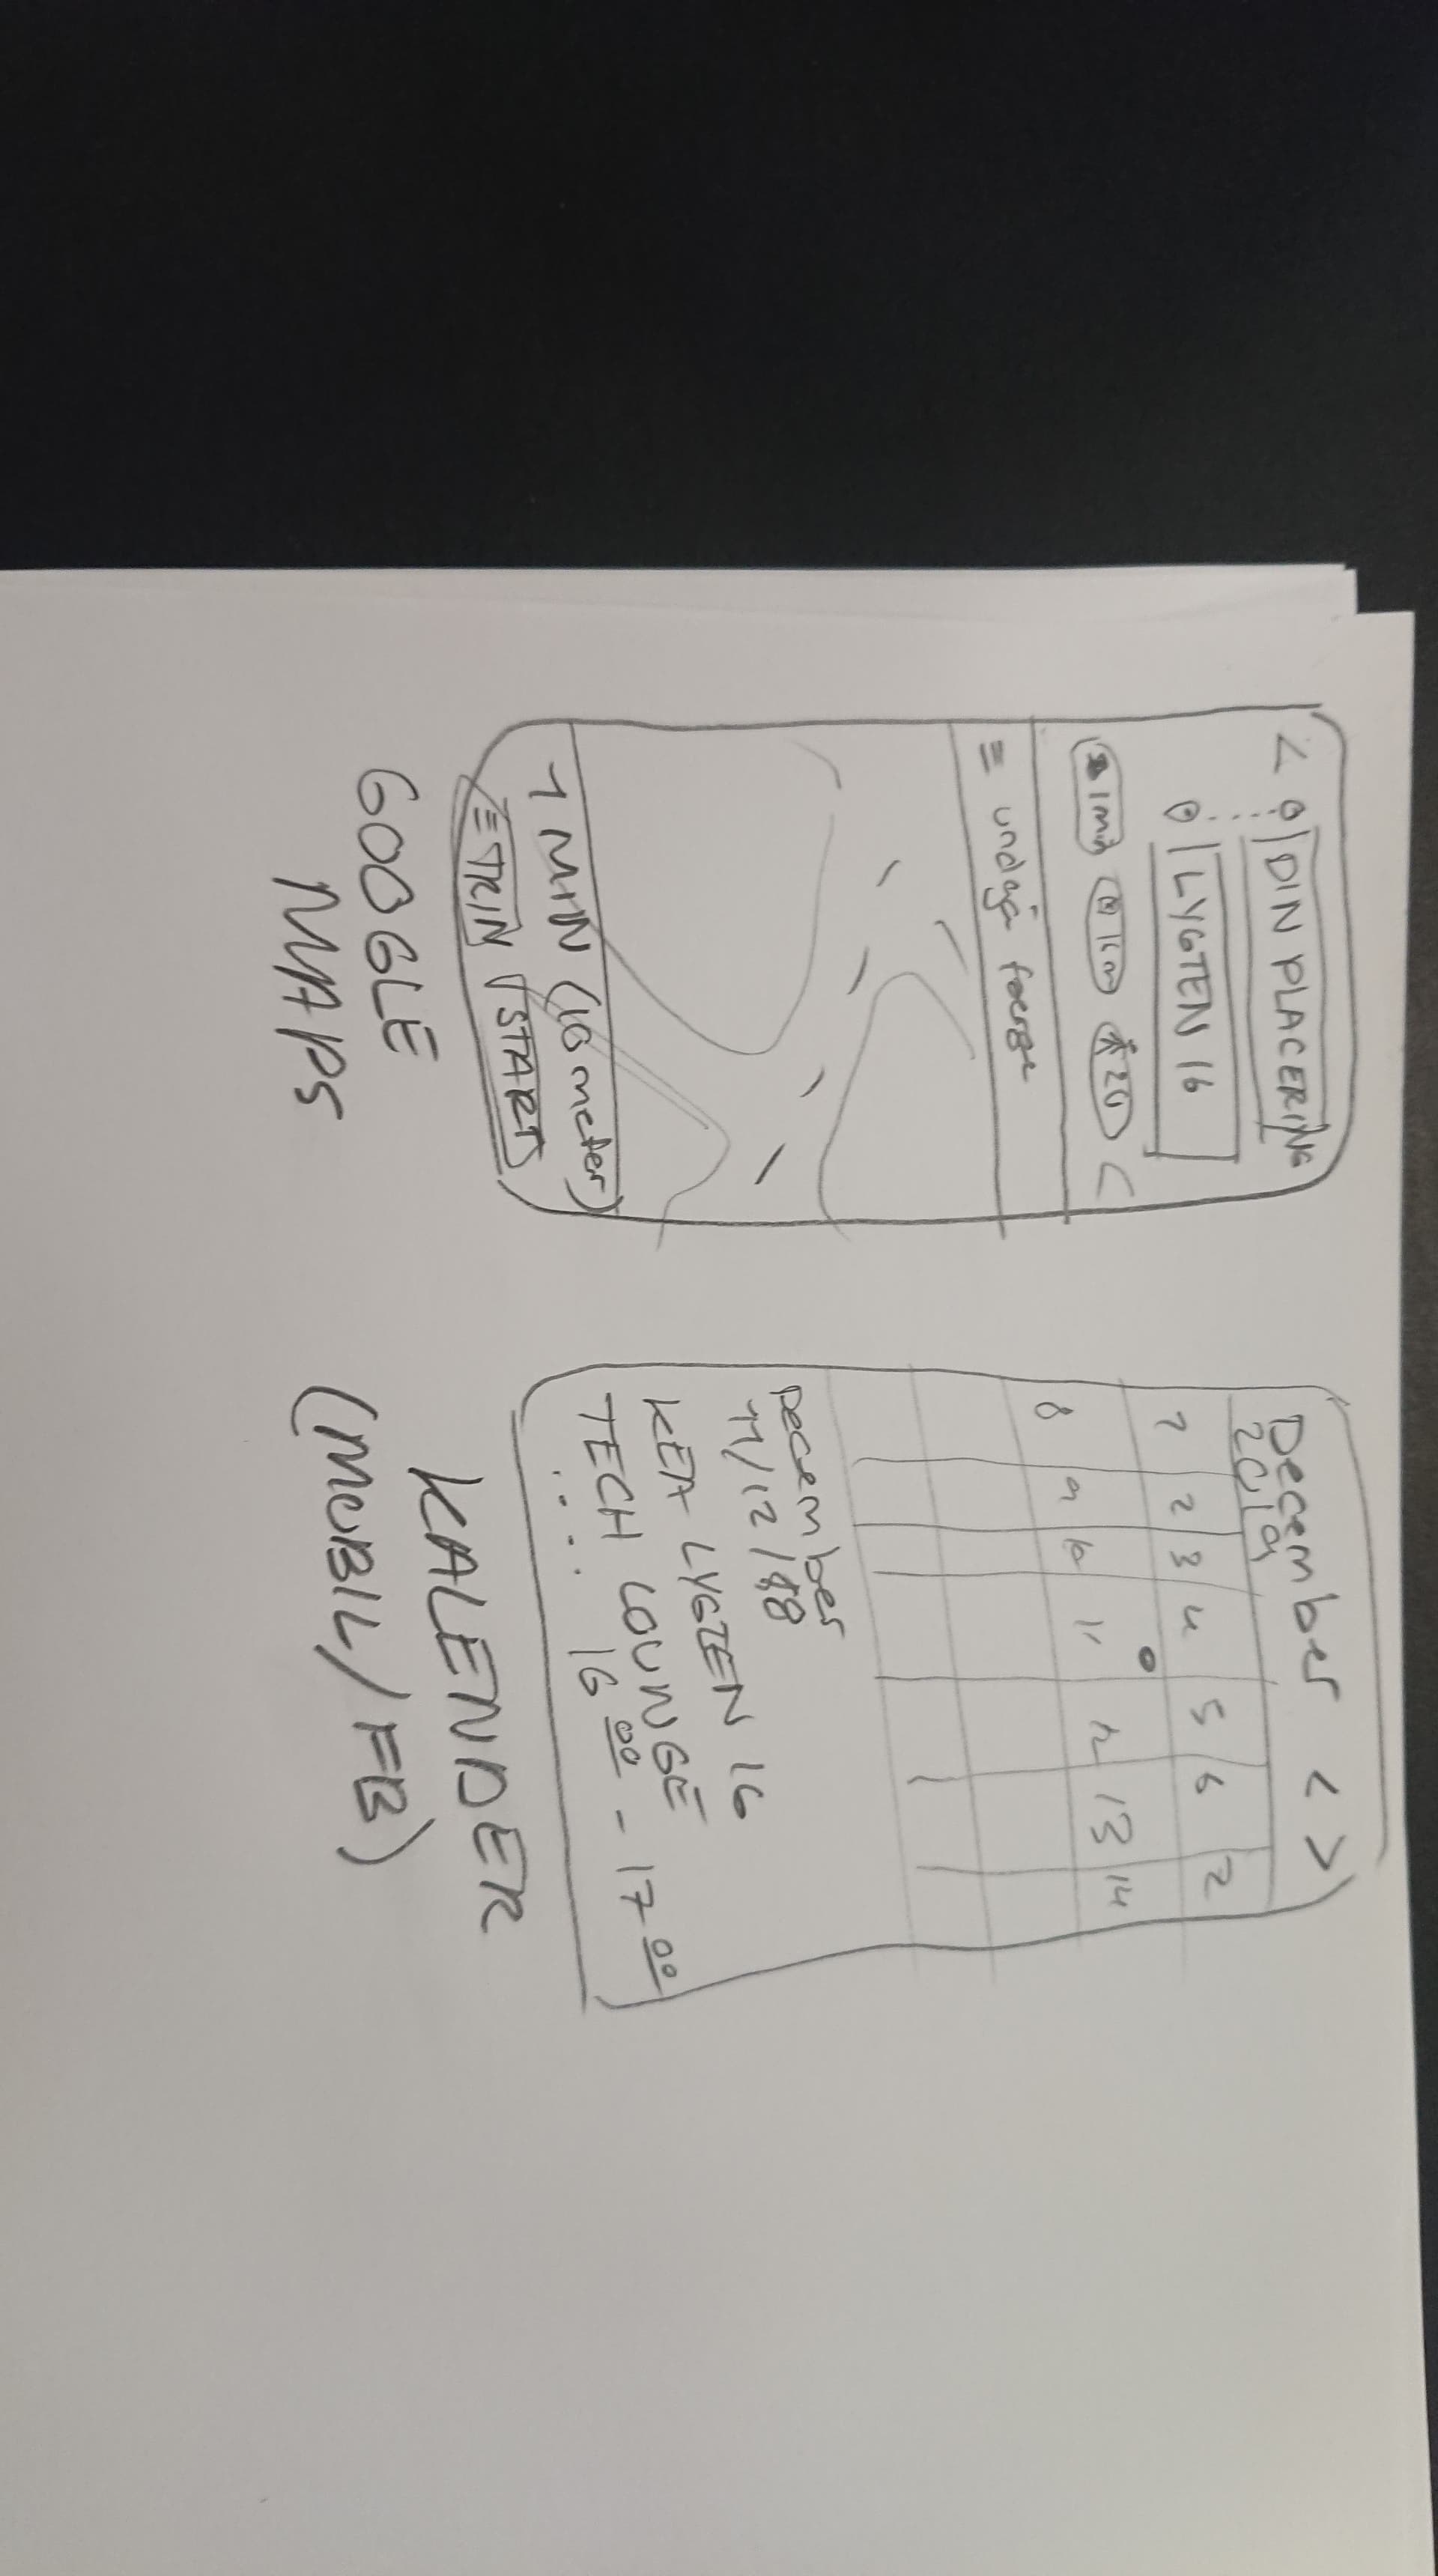 < DIN PLACERING
LYGTEN 16
1min 1tm 20 <
≡ undgå færge
1 MIN (16 meter)
≡ TRIN START
GOOGLE
MAPS
December < >
2019
1 2 3 4 5 6 7
8 9 10 11 12 13 14
December
11/12/
KEA LYGTEN 16
TECH LOUNGE
.... 16 00 - 17 00
KALENDER
(MOBIL/FB)